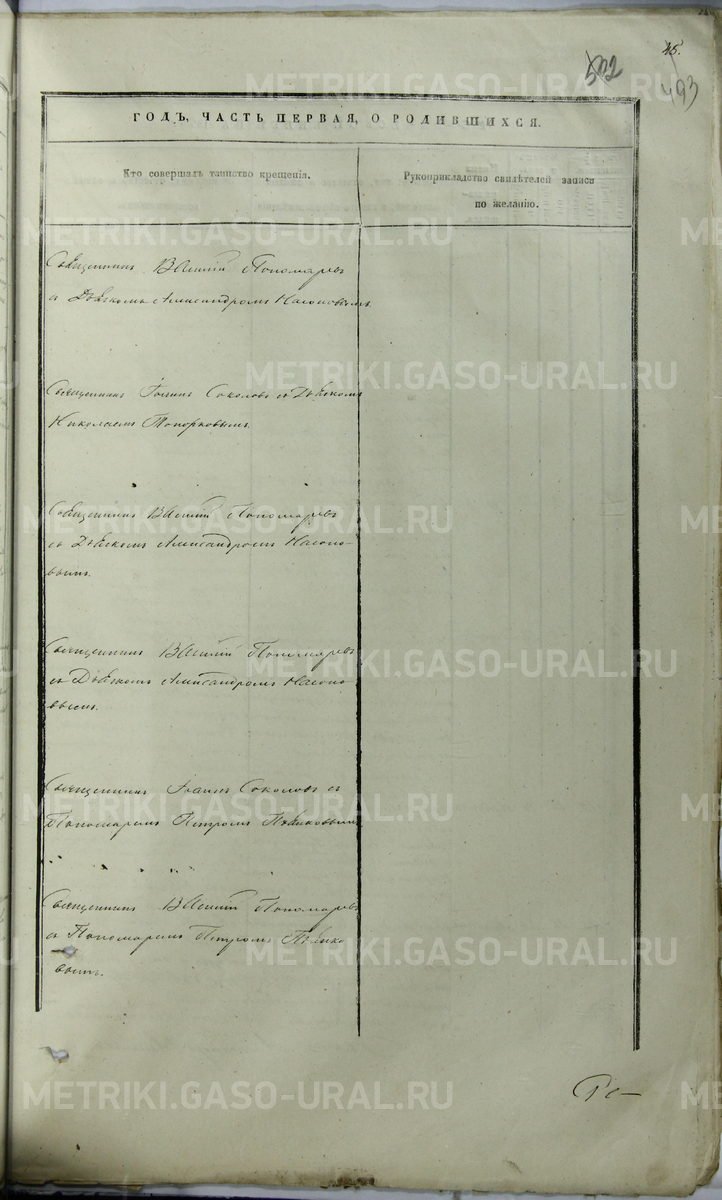 45.
502
493
ГОДЪ, ЧАСТЬ ПЕРВАЯ, О РОДИВШИХСЯ.
Кто совершалъ таинство крещенія.
Рукоприкладство свидѣтелей записи
по желанію.
Священникъ Василій Пономаревъ
съ Дьякомъ Александромъ Насоновымъ.
Священникъ Іоаннъ Соколовъ съ Дьякомъ
Николаемъ Топорковымъ.
Священникъ Василій Пономаревъ
съ Дьякомъ Александромъ Насоно-
вымъ.
Священникъ Василій Пономаревъ
съ Дьякомъ Александромъ Насоно-
вымъ.
Священникъ Іоаннъ Соколовъ съ
Пономаремъ Петромъ
Священникъ Василій Пономаревъ
съ Пономаремъ Петромъ
METRIKI.GASO-URAL.RU